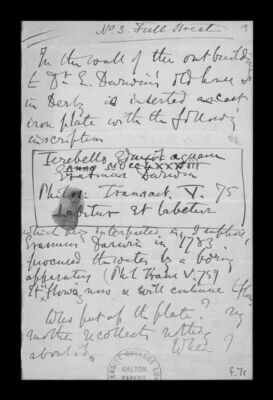 No. 3. Full Street
In the wall of the outbuilding
to Dr E. Darwin's old house
in Derby is inserted a cast
iron plate with the following
inscription
Terebello eduxit aquam
Anno MDCCLXXXIII
Erasmus Darwin
Philos. Transact. V. 75
Labitur et labetur
which being interpreted is, I suppose,
Erasmus Darwin in 1783
procured this water by a boring
apparatus (Phil Trans V. 75)
It flows now & will continue to flow.
Who put up the plate? My
mother recollects nothing
about it. When?
GALTON
PAPERS